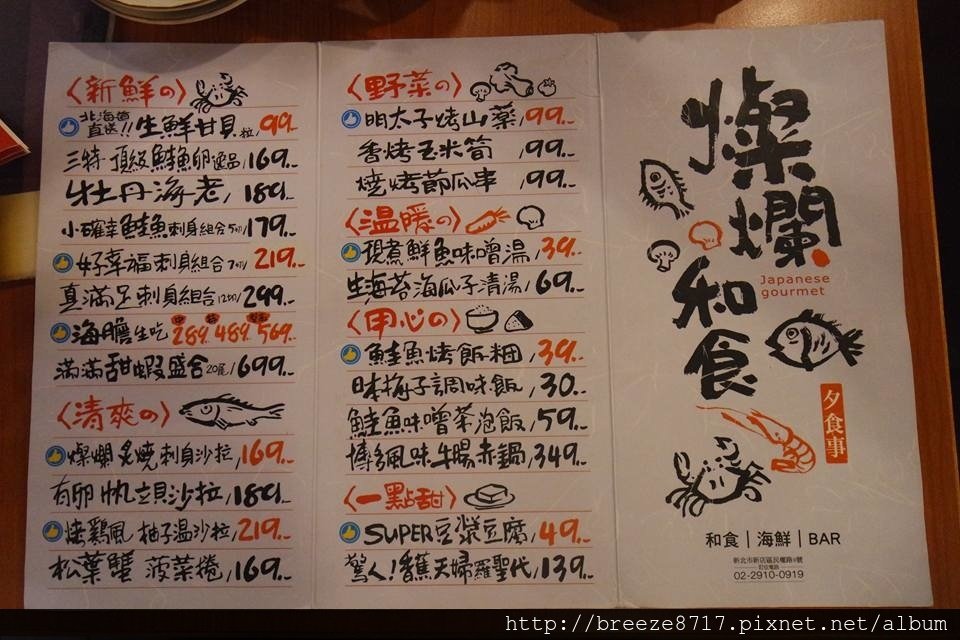 〈新鮮の〉
北海道直送!! 生鮮甘貝粒/99.-
三特頂級鮭魚卵逸品/169.-
牡丹海老/189.-
小確幸鮭魚刺身組合5切/179.-
好幸福刺身組合7切/219.-
真滿足刺身組合12切/299.-
海膽生吃 289. 489. 569.-
滿滿甜蝦盛合20尾/699.-
〈清爽の〉
燦爛炙燒刺身沙拉/169.-
有卵帆立貝沙拉/189.-
烤鷄風柚子温沙拉/219.-
松葉蟹菠菜捲/169.-
〈野菜の〉
明太子烤山藥/99.-
香烤玉米筍/99.-
燒烤節瓜串/99.-
〈温暖の〉
現煮鮮魚味噌湯/39.-
生海苔海瓜子清湯/69.-
〈甲心の〉
鮭魚烤飯糰/39.-
日本梅子調味飯/30.-
鮭魚味噌茶泡飯/59.-
博多風味牛腸赤鍋/349.-
〈一點甜〉
SUPER豆漿豆腐/49.-
驚人!香蕉天婦羅聖代/139.-
燦爛
和食
Japanese
gourmet
夕食事
和食｜海鮮｜BAR
新北市新店區民權路9號
訂位電話
02-2910-0919
http://breeze8717.pixnet.net/album